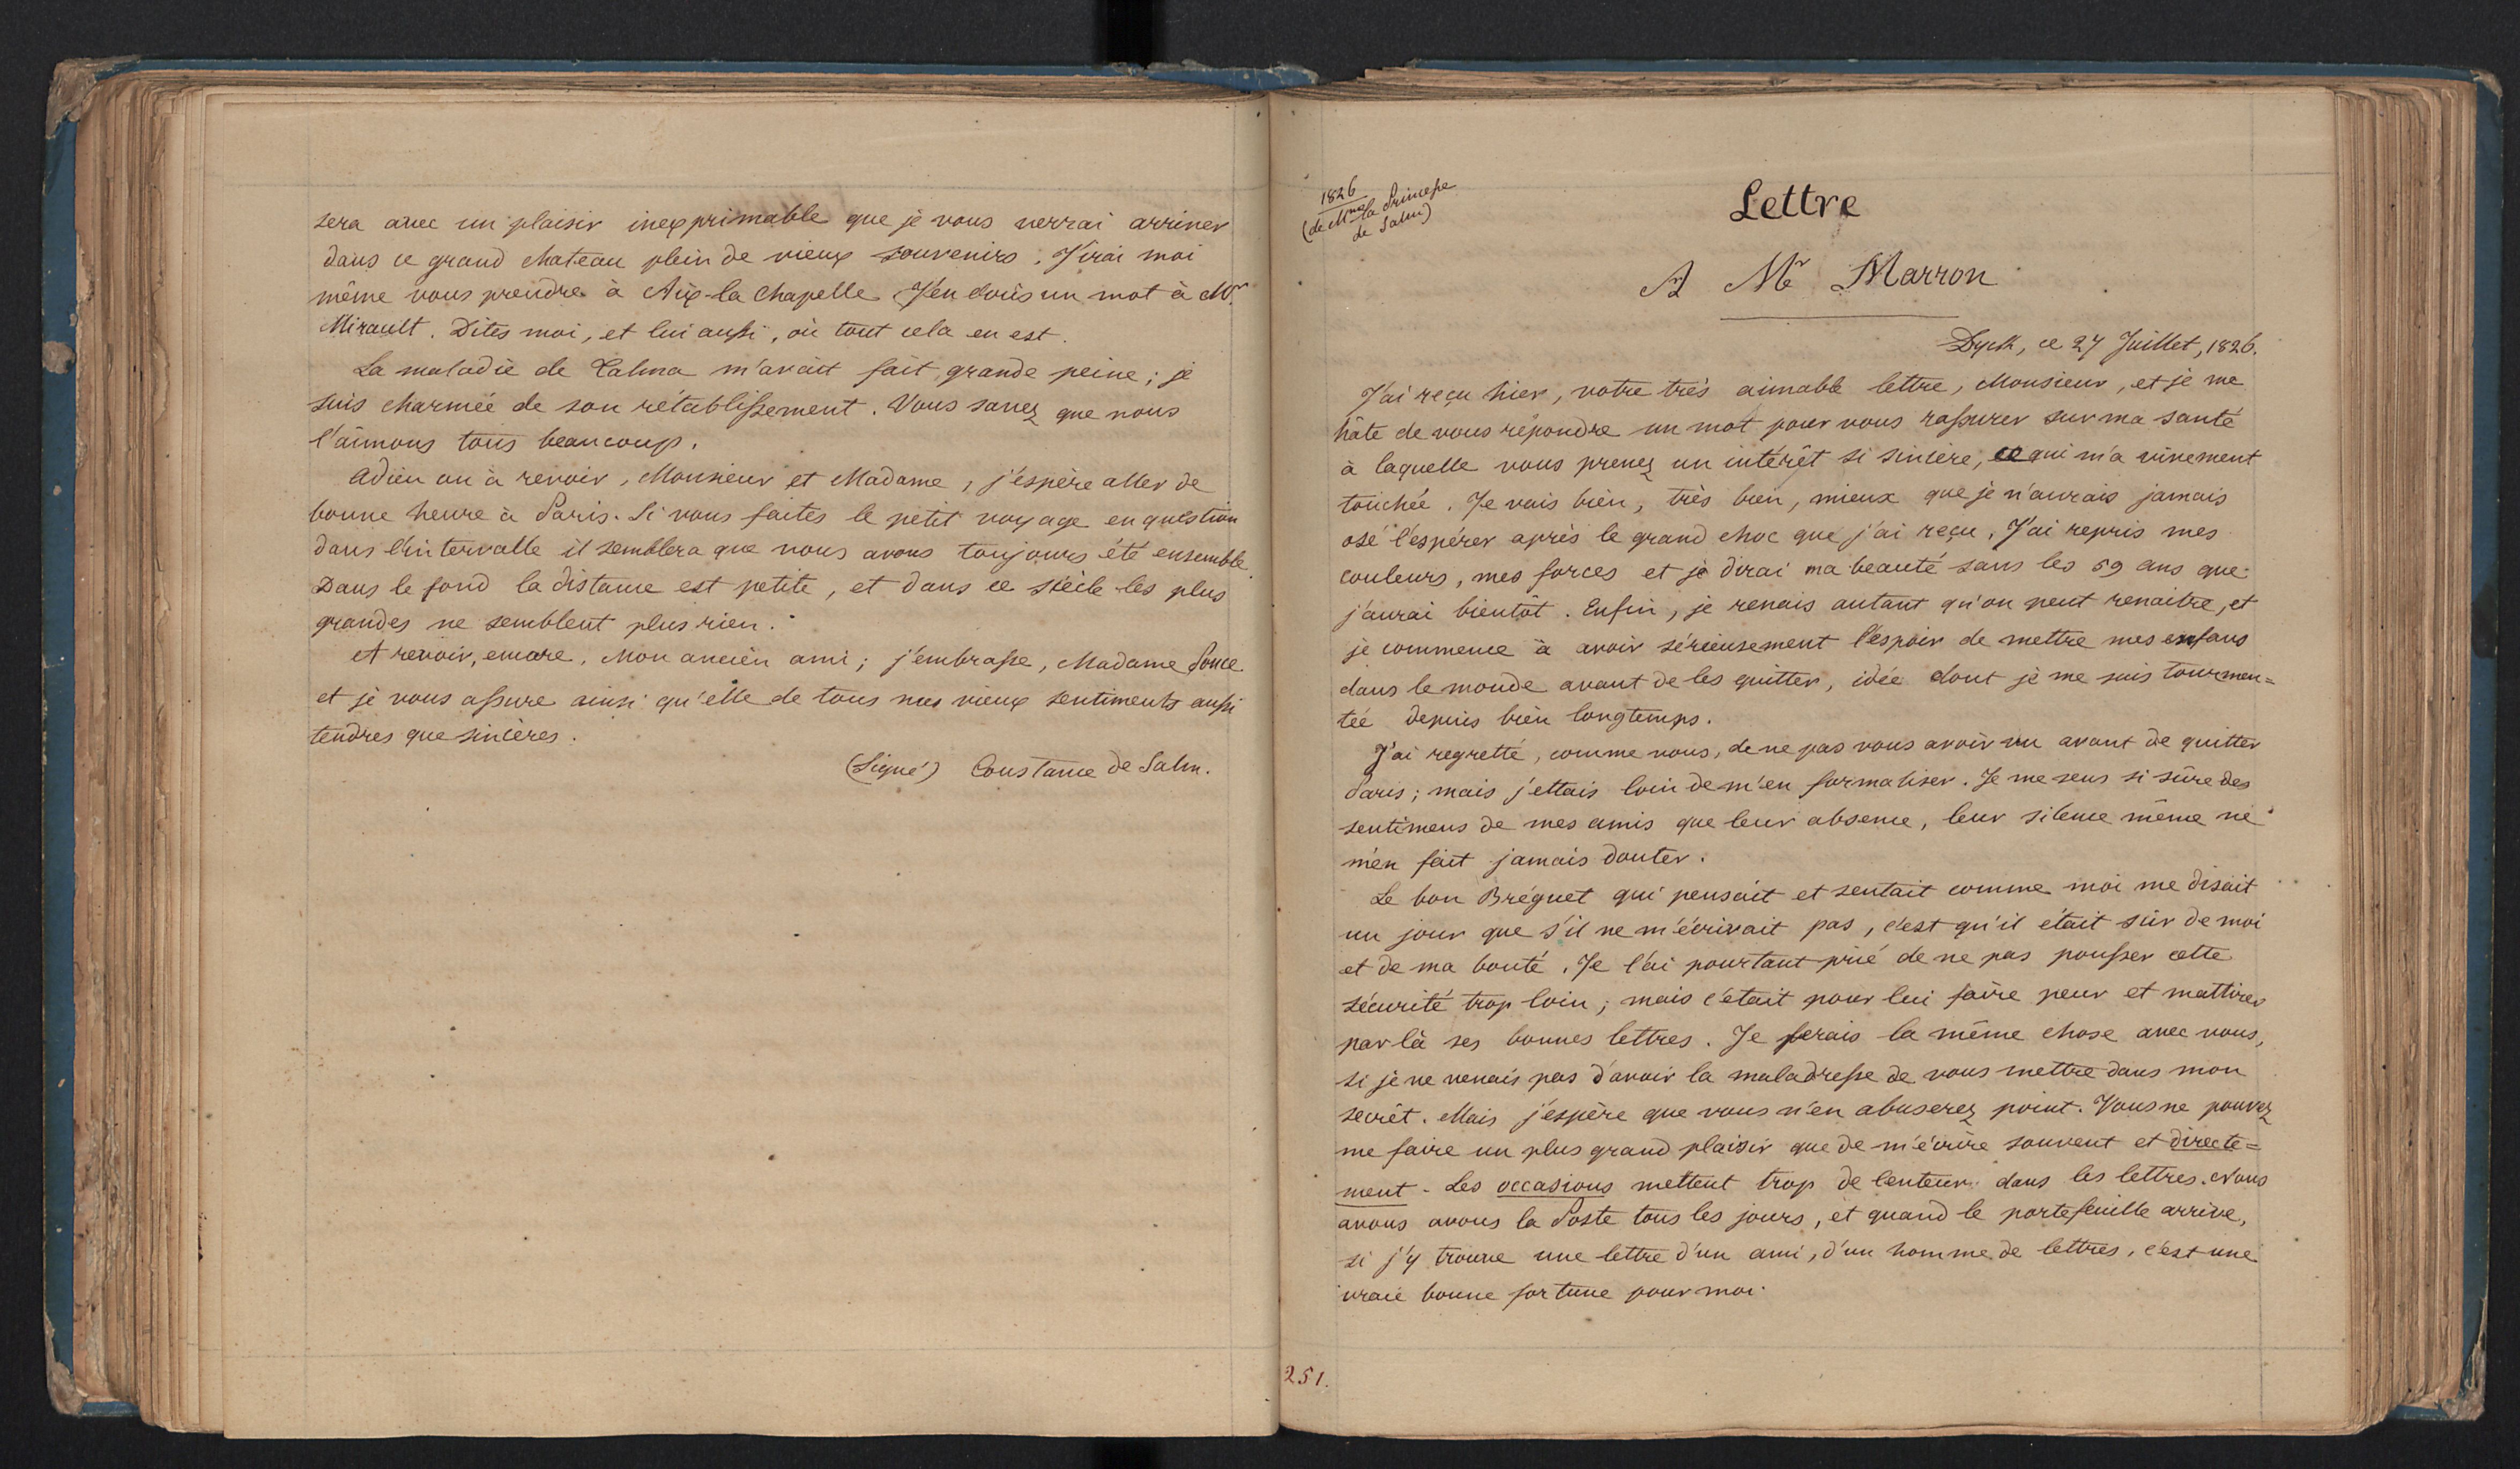 sera avec un plaisir inexprimable que je vous verrai arriver
dans ce grand chateau plein de vieux souvenirs. J'irai moi
même vous prendre à Aix-la Chapelle J'en écris un mot à Mr
Mirault. Dites moi, et lui aussi, où tout cela en est.
La maladie de Talma m'avait fait grande peine; je
suis charmée de son rétablissement. Vous savez que nous
l'aimons tous beaucoup.
Adieu ou à revoir, Monsieur et Madame, j'espère aller de
bonne heure à Paris. Si vous faites le petit voyage en question
dans l'intervalle il semblera que nous avons toujours été ensemble.
Dans le fond la distance est petite, et dans ce siècle les plus
grandes ne semblent plus rien.
A revoir, encore, Mon ancien ami; j'embrasse, Madame Ponce
et je vous assure ainsi qu'elle de tous mes vieux sentiments aussi
tendres que sincères.
(Signé) Constance de Salm.
1826
(de Mme la Princesse
de Salm)
Lettre
A Mr Marron
Dyck, ce 27 Juillet, 1826.
J'ai reçu hier, votre très aimable lettre, Monsieur, et je me
hâte de vous répondre un mot pour vous rassurer sur ma santé
à laquelle vous prenez un intérêt si sincère, ce qui m'a vivement
touchée. Je vais bien, très bien, mieux que je n'aurais jamais
osé l'espérer après le grand choc que j'ai reçu, J'ai repris mes
couleurs, mes forces et je dirai ma beauté sans les 59 ans que
j'aurai bientôt. Enfin, je renais autant qu'on peut renaitre, et
je commence à avoir sérieusement l'espoir de mettre mes enfans
dans le monde avant de les quitter, idée dont je me suis tourmen=
tée depuis bien longtemps.
J'ai regretté, comme vous, de ne pas vous avoir vu avant de quitter
Paris; mais j'ettais loin de m'en formaliser. Je me sens si sûre des
sentimens de mes amis que leur absence, leur silence même ne
m'en fait jamais douter.
Le bon Bréguet qui pensait et sentait comme moi me disait
un jour que s'il ne m'écrivait pas, c'est qu'il était sûr de moi
et de ma bonté. Je l'ai pourtant prié de ne pas pousser cette
sécurité trop loin; mais c'était pour lui faire peur et mattirer
par là ses bonnes lettres. Je ferais la même chose avec vous,
si je ne venais pas d'avoir la maladresse de vous mettre dans mon
secrêt. Mais j'espère que vous n'en abuserez point. Vous ne pouvez
me faire un plus grand plaisir que de m'écrire souvent et directe=
ment - Les occasions mettent trop de lenteur dans les lettres. Nous
avons avons la Poste tous les jours, et quand le portefeuille arrive,
si j'y trouve une lettre d'un ami, d'un homme de lettres, c'est une
vraie bonne fortune pour moi.
251.